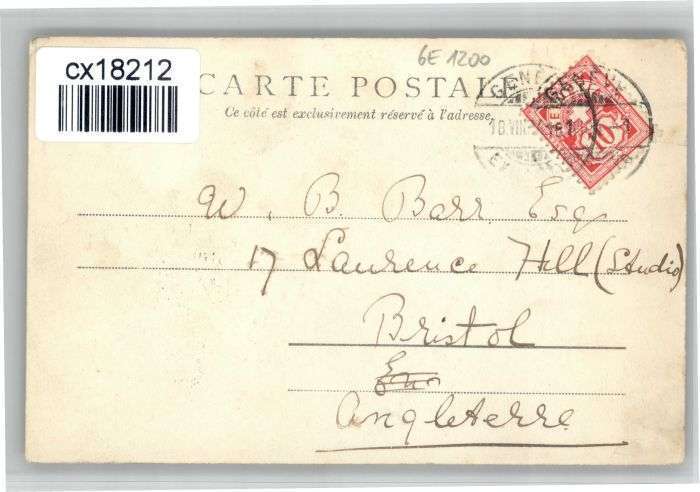 cx18212
6E 1200
CARTE POSTALE
Ce côté est exclusivement réservé à l'adresse.
W. B. Barr Esq
17 Laurence Hill (Studio)
Bristol
Angleterre